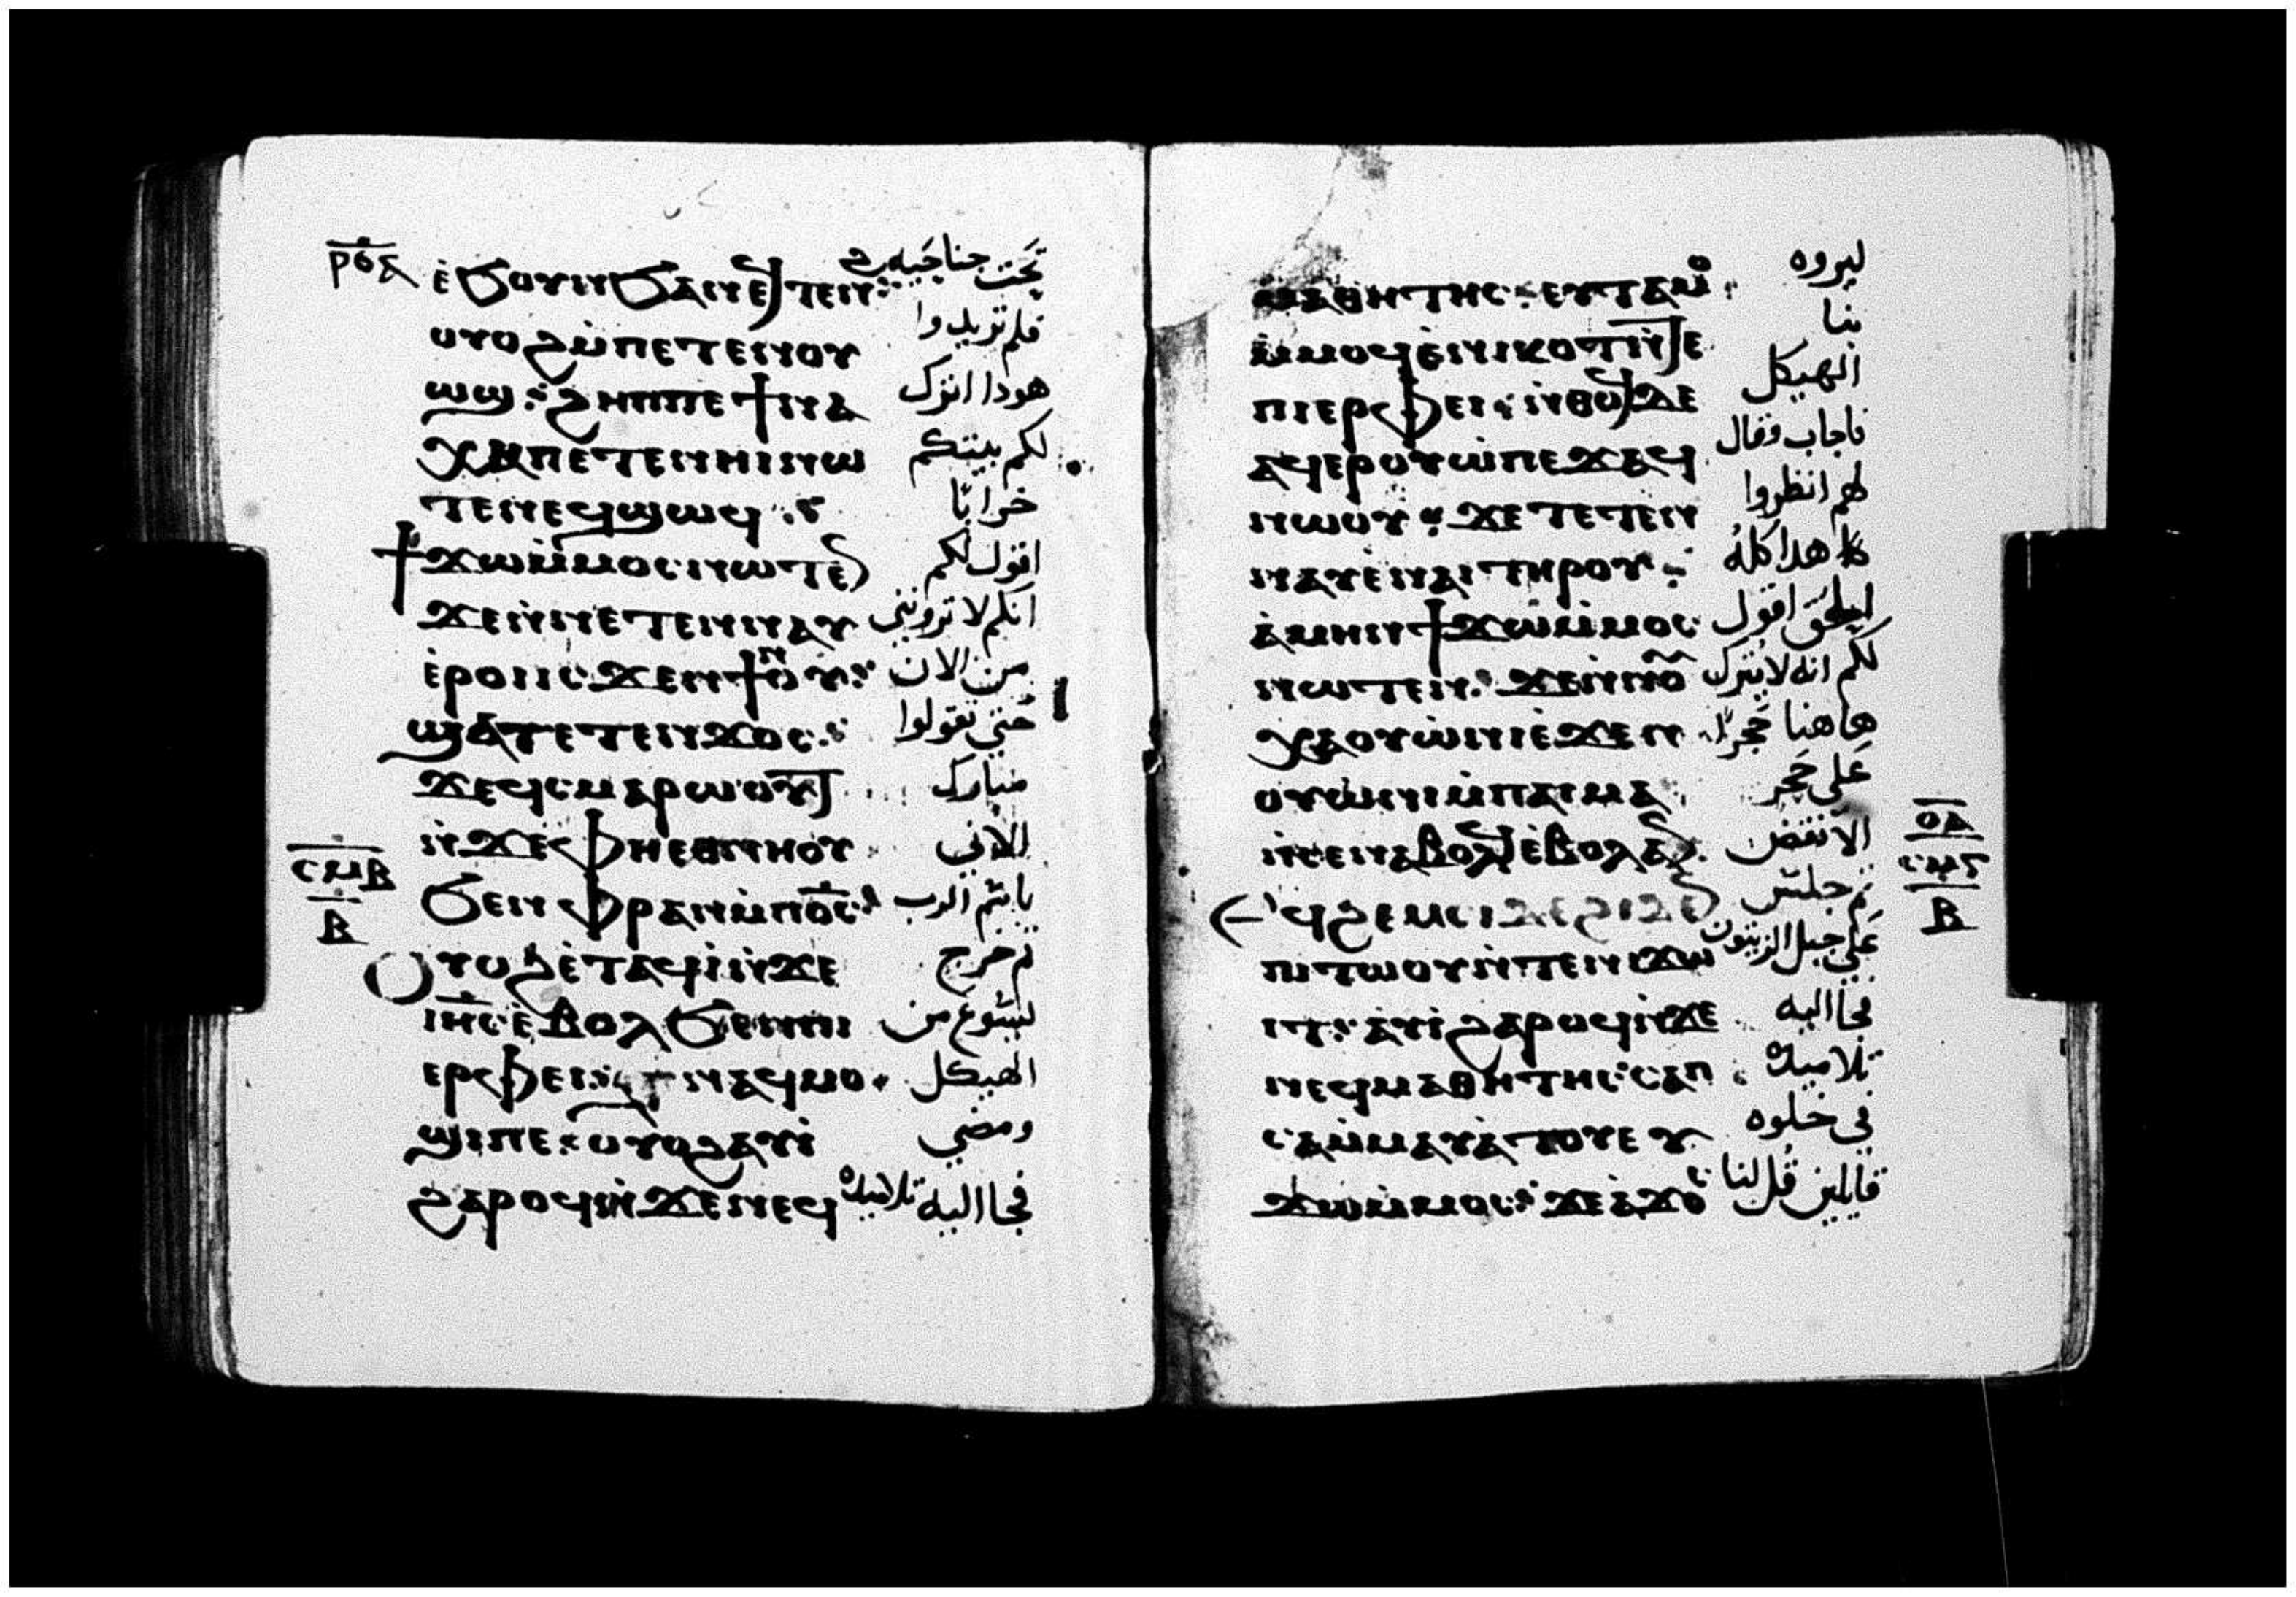 ⲣⲟⲁ
ⲉ̀ϧⲟⲩⲛϧⲁⲛⲉϥⲧⲉⲛϩ تحت جناحيه
ⲟⲩⲟϩⲙ̀ⲡⲉⲧⲉⲛⲟⲩ فلم تريدوا
ⲱϣ : ϩⲏⲡⲡⲉϯⲛⲁ هودا اترك
ⲭⲁⲡⲉⲧⲉⲛⲏⲓⲛⲱ لكم بيتكم
ⲧⲉⲛⲉϥϣⲱϥ خرابا
ϯϫⲱⲙ̀ⲙⲟⲥⲛⲱⲧⲉⲛ اقول لكم
ϫⲉⲛ̀ⲛⲉⲧⲉⲛⲛⲁⲩ انكم لا تروننى
ⲉ̀ⲣⲟⲓⲓⲥϫⲉⲛϯⲛⲟⲩ من الان
ϣⲁⲧⲉⲧⲉⲛϫⲟⲥ حتى تقولوا
ϫⲉϥⲥⲙⲁⲣⲱⲟⲩⲧ مبارك
ⲛ̀ϫⲉⲫⲏⲉⲑⲛⲏⲟⲩ الاتي
ϧⲉⲛⲫⲣⲁⲛⲙ̀ⲡⲟ̅ⲥ̅ باسم الرب
ⲟⲩⲟϩⲉ̀ⲧⲁϥⲓ̀ⲛ̀ϫⲉ ثم خرج
ⲓⲏ̅ⲥ̅ⲉ̀ⲃⲟⲗϧⲉⲛⲡⲓ ليسوع من
ⲉⲣⲫⲉⲓ ⲛⲁϥⲙⲟ الهيكل
ϣⲓⲡⲉ : ⲟⲩⲟϩⲁⲩⲓ̀ ومضى
ϩⲁⲣⲟϥⲛ̀ϫⲉⲛⲉϥ فجا اليه تلاميده
ⲥⲙⲃ
ⲃ
ⲙⲁⲑⲏⲧⲏⲥ : ⲉⲩⲧⲁⲙⲟ ليروه
ⲙ̀ⲙⲟϥⲉ̀ⲛⲓⲕⲟⲧⲛ̀ⲧⲉ بنا
ⲡⲓⲉⲣⲫⲉⲓ : ⲛ̀ⲑⲟϥϫⲉ الهيكل
ⲁϥⲉⲣⲟⲩⲱ̀ⲡⲉϫⲁϥ فاجاب وقال
ⲛⲱⲟⲩ : ϫⲉⲧⲉⲧⲉⲛ لهم انظروا
ⲛⲁⲩⲉ̀ⲛⲁⲓⲧⲏⲣⲟⲩ هدا كله
ⲁ̀ⲙⲏⲛϯϫⲱⲙ̀ⲙⲟⲥ الحق اقول
ⲛⲱⲧⲉⲛ : ϫⲉⲛ̀ⲛⲟⲩ لكم انه لا يترك
ⲭⲁⲟⲩⲱ̀ⲛⲓⲉ̀ϫⲉⲛ هاهنا حجرا
ⲟⲩⲱ̀ⲛⲓⲙ̀ⲡⲁⲓⲙⲁ على حجر
ⲛ̀ⲥⲉⲛⲁⲃⲟⲗϥⲉ̀ⲃⲟⲗⲁⲛ الا تنتقض
ⲉϥϩⲉⲙⲥⲓⲇⲉϩⲓϫⲉⲛ ثم جلس
ⲡⲓⲧⲱⲟⲩⲛ̀ⲧⲉⲛⲓϫⲱ على جبل الزيتون
ⲓⲧ : ⲁⲩⲓ̀ϩⲁⲣⲟϥⲛ̀ϫⲉ فجا اليه
ⲛⲉϥⲙⲁⲑⲏⲧⲏⲥ : ⲥⲁⲡ تلاميده
ⲥⲁⲙ̀ⲙⲁⲩⲁ̀ⲧⲟⲩⲉⲩ في خلوه
ϫⲱⲙ̀ⲙⲟⲥ : ϫⲉⲁ̀ϫⲟⲥ قايلين قل لنا
ⲟⲇ
ⲥⲙⲅ
ⲃ